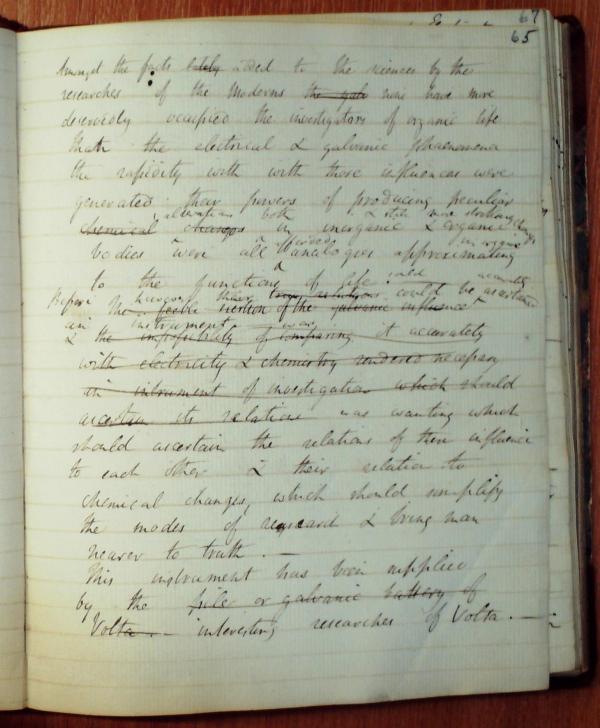 67
65
Amongst the facts lately added to the sciences by the
researches of the Moderns the gal none have more
deservedly occupied the investigators of organic life
than the electrical & galvanic phaenomena
the rapidity with with those influences were
generated their powers of producing peculiar
alterations both & still more striking changes
chemical changes in inorganic & organic
bodies were all analogies approximating
to the functions of life could accurately
Before however their true relations could be ascertained
the feeble exertion of the galvanic influence
an instrument
& the impossibility of comparing it accurately
with electricity & chemistry rendered necessary
an instrument of investigation which should
ascertain its relations was wanting which
should ascertain the relations of these influences
to each other & their relation to
chemical changes, which should simplify
the modes of research & bring man
nearer to truth. —
This instrument has been supplied
by the pile or galvanic battery of
Volta. — interesting researches of Volta. —